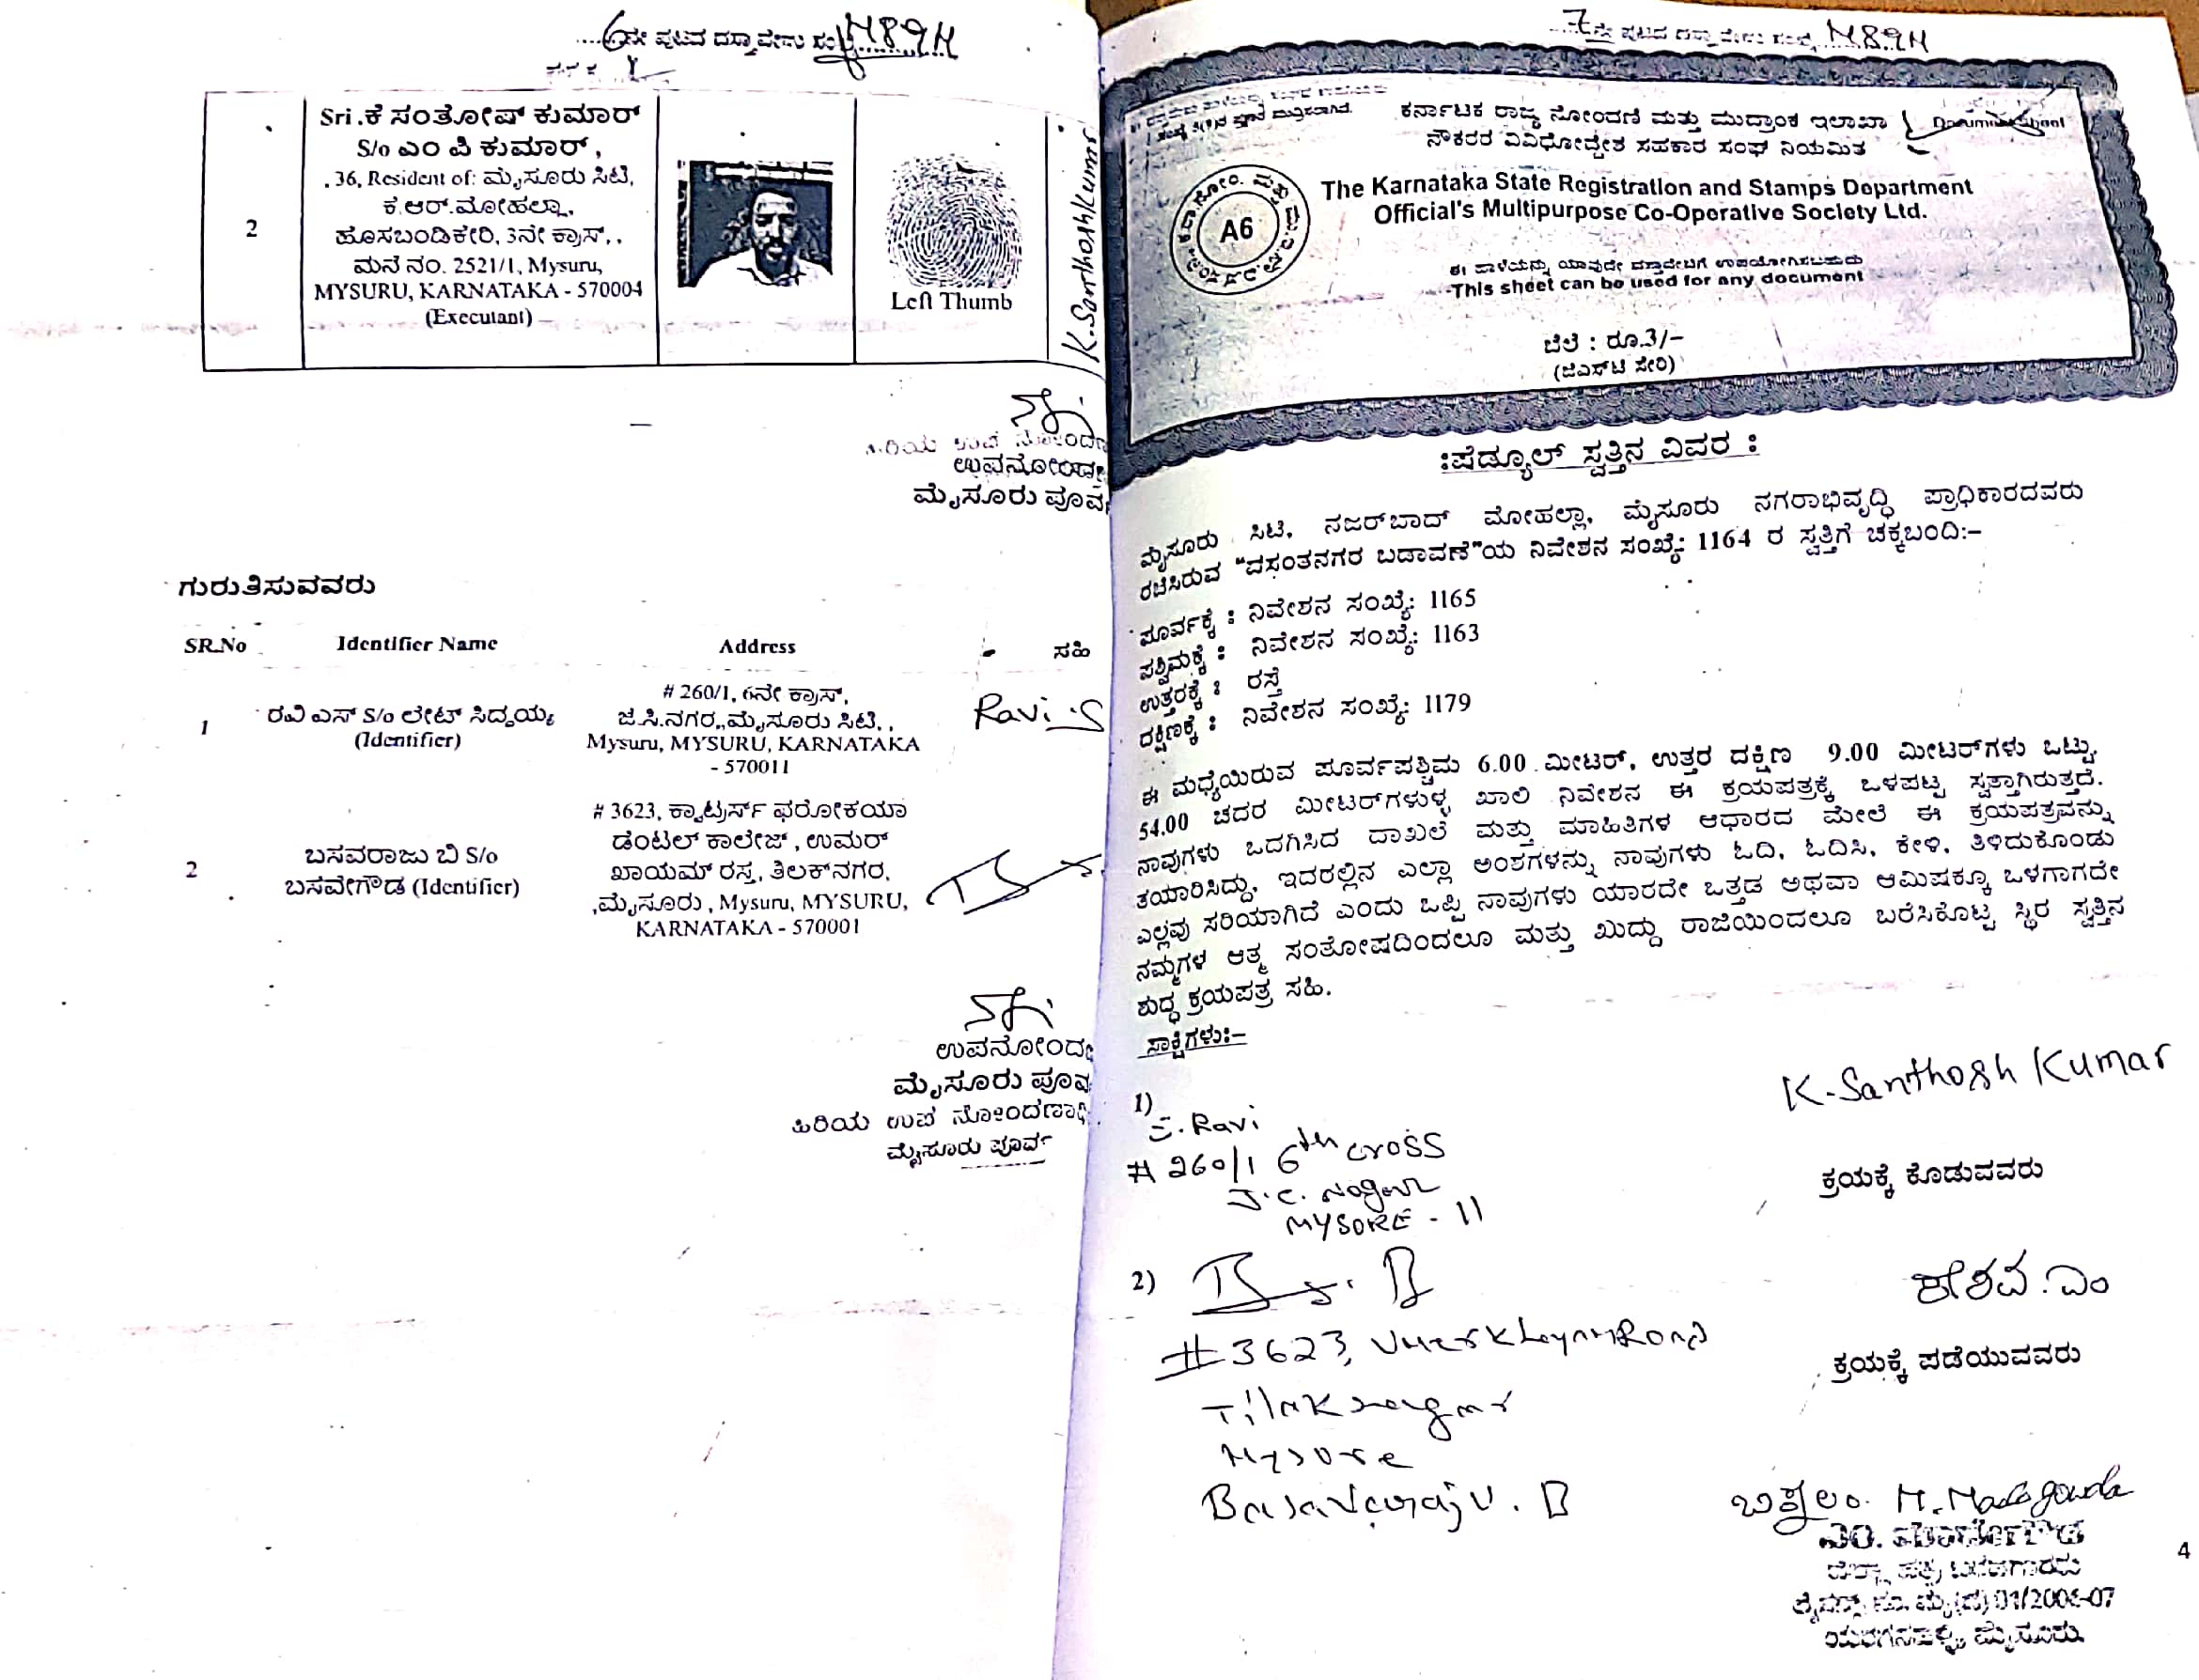 6ನೇ ಪುಟದ ದಸ್ತಾವೇಜು
2
Sri .ಕೆ ಸಂತೋಷ್ ಕುಮಾರ್
S/o ಎಂ ಪಿ ಕುಮಾರ್,
. 36, Resident of: ಮೈಸೂರು ಸಿಟಿ,
ಕೆ.ಆರ್.ಮೋಹಲ್ಲಾ,
ಹೊಸಬಂಡಿಕೇರಿ, 3ನೇ ಕ್ರಾಸ್, ,
ಮನೆ ನಂ. 2521/1, Mysuru,
MYSURU, KARNATAKA - 570004
(Executant)
Left Thumb
K.Santhosh Kumar
ಹಿರಿಯ ಉಪ ನೋಂದಣ
ಉಪನೋಂದಣ
ಮೈಸೂರು ಪೂರ್ವ
ಗುರುತಿಸುವವರು
SR.No Identifier Name Address ಸಹಿ
1 ರವಿ ಎಸ್ S/o ಲೇಟ್ ಸಿದ್ದಯ್ಯ
(Identifier)
# 260/1, 6ನೇ ಕ್ರಾಸ್,
ಜೆ.ಸಿ.ನಗರ,,ಮೈಸೂರು ಸಿಟಿ, ,
Mysuru, MYSURU, KARNATAKA
- 570011
Ravi.S
2 ಬಸವರಾಜು ಬಿ S/o
ಬಸವೇಗೌಡ (Identifier)
# 3623, ಕ್ವಾಟ್ರರ್ಸ್ ಫರೋಕಯಾ
ಡೆಂಟಲ್ ಕಾಲೇಜ್ , ಉಮರ್
ಖಾಯಮ್ ರಸ್ತೆ, ತಿಲಕ್‌ನಗರ,
,ಮೈಸೂರು , Mysuru, MYSURU,
KARNATAKA - 570001
ಉಪನೋಂದಣ
ಮೈಸೂರು ಪೂರ್ವ
ಹಿರಿಯ ಉಪ ನೋಂದಣಾಧಿ
ಮೈಸೂರು ಪೂರ್ವ
7ನೇ ಪುಟದ ದಸ್ತಾವೇಜು
ಕರ್ನಾಟಕ ರಾಜ್ಯ ನೋಂದಣಿ ಮತ್ತು ಮುದ್ರಾಂಕ ಇಲಾಖಾ
ನೌಕರರ ವಿವಿಧೋದ್ದೇಶ ಸಹಕಾರ ಸಂಘ ನಿಯಮಿತ
The Karnataka State Registration and Stamps Department
Official's Multipurpose Co-Operative Society Ltd.
A6
ಈ ಹಾಳೆಯನ್ನು ಯಾವುದೇ ದಸ್ತಾವೇಜಿಗೆ ಉಪಯೋಗಿಸಬಹುದು
This sheet can be used for any document
ಬೆಲೆ : ರೂ.3/-
(ಜಿಎಸ್‌ಟಿ ಸೇರಿ)
:ಷೆಡ್ಯೂಲ್ ಸ್ವತ್ತಿನ ವಿವರ :
ಮೈಸೂರು ಸಿಟಿ, ನಜರ್‌ಬಾದ್ ಮೋಹಲ್ಲಾ, ಮೈಸೂರು ನಗರಾಭಿವೃದ್ಧಿ ಪ್ರಾಧಿಕಾರದವರು
ರಚಿಸಿರುವ "ವಸಂತನಗರ ಬಡಾವಣೆ"ಯ ನಿವೇಶನ ಸಂಖ್ಯೆ: 1164 ರ ಸ್ವತ್ತಿಗೆ ಚಕ್ಕಬಂದಿ:-
ಪೂರ್ವಕ್ಕೆ : ನಿವೇಶನ ಸಂಖ್ಯೆ: 1165
ಪಶ್ಚಿಮಕ್ಕೆ : ನಿವೇಶನ ಸಂಖ್ಯೆ: 1163
ಉತ್ತರಕ್ಕೆ : ರಸ್ತೆ
ದಕ್ಷಿಣಕ್ಕೆ : ನಿವೇಶನ ಸಂಖ್ಯೆ: 1179
ಈ ಮಧ್ಯೆಯಿರುವ ಪೂರ್ವಪಶ್ಚಿಮ 6.00 ಮೀಟರ್, ಉತ್ತರ ದಕ್ಷಿಣ 9.00 ಮೀಟರ್‌ಗಳು ಒಟ್ಟು
54.00 ಚದರ ಮೀಟರ್‌ಗಳುಳ್ಳ ಖಾಲಿ ನಿವೇಶನ ಈ ಕ್ರಯಪತ್ರಕ್ಕೆ ಒಳಪಟ್ಟ ಸ್ವತ್ತಾಗಿರುತ್ತದೆ.
ನಾವುಗಳು ಒದಗಿಸಿದ ದಾಖಲೆ ಮತ್ತು ಮಾಹಿತಿಗಳ ಆಧಾರದ ಮೇಲೆ ಈ ಕ್ರಯಪತ್ರವನ್ನು
ತಯಾರಿಸಿದ್ದು, ಇದರಲ್ಲಿನ ಎಲ್ಲಾ ಅಂಶಗಳನ್ನು ನಾವುಗಳು ಓದಿ, ಓದಿಸಿ, ಕೇಳಿ, ತಿಳಿದುಕೊಂಡು
ಎಲ್ಲವು ಸರಿಯಾಗಿದೆ ಎಂದು ಒಪ್ಪಿ ನಾವುಗಳು ಯಾರದೇ ಒತ್ತಡ ಅಥವಾ ಆಮಿಷಕ್ಕೂ ಒಳಗಾಗದೇ
ನಮ್ಮಗಳ ಆತ್ಮ ಸಂತೋಷದಿಂದಲೂ ಮತ್ತು ಖುದ್ದು ರಾಜಿಯಿಂದಲೂ ಬರೆಸಿಕೊಟ್ಟ ಸ್ಥಿರ ಸ್ವತ್ತಿನ
ಶುದ್ಧ ಕ್ರಯಪತ್ರ ಸಹಿ.
ಸಾಕ್ಷಿಗಳು:-
1)
S. Ravi
# 260/1 6th cross
J.C. Nagar
MYSORE - 11
K.Santhosh Kumar
ಕ್ರಯಕ್ಕೆ ಕೊಡುವವರು
2)
# 3623,
Tilaknagar
Mysore
Basavaraju . B
ಕೇಶವ . ಎಂ
ಕ್ರಯಕ್ಕೆ ಪಡೆಯುವವರು
01/2006-07
4